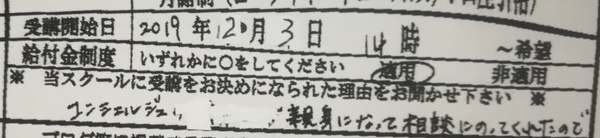 受講開始日 2019年12月3日 14時 ~希望
給付金制度 いずれかに○をしてください 適用 非適用
※ 当スクールに受講をお決めになられた理由をお聞かせ下さい ※
コンシェルジュ 親身になって相談にのってくれたので